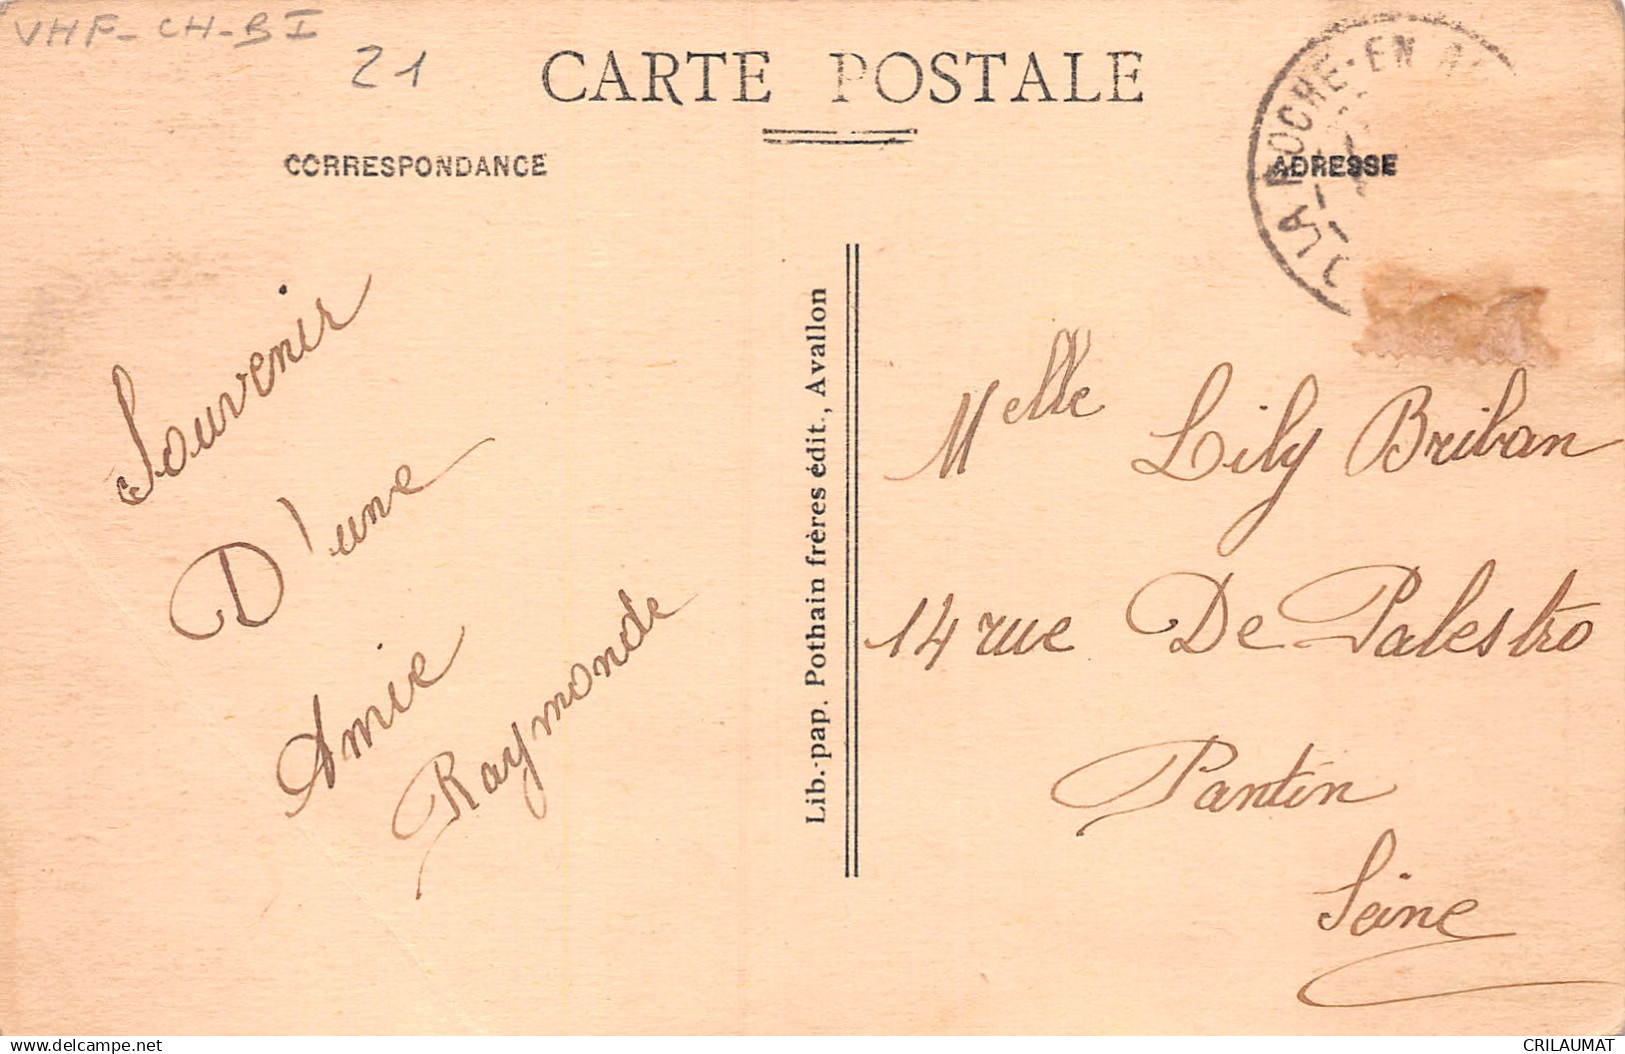 VHF-CH-BI
21
CARTE POSTALE
CORRESPONDANCE
ADRESSE
LA ROCHE-EN
Souvenir
D'une
Amie
Raymonde
Lib.-pap. Pothain frères édit., Avallon
Melle Lily Briban
14 rue De Palestro
Pantin
Seine
CRILAUMAT